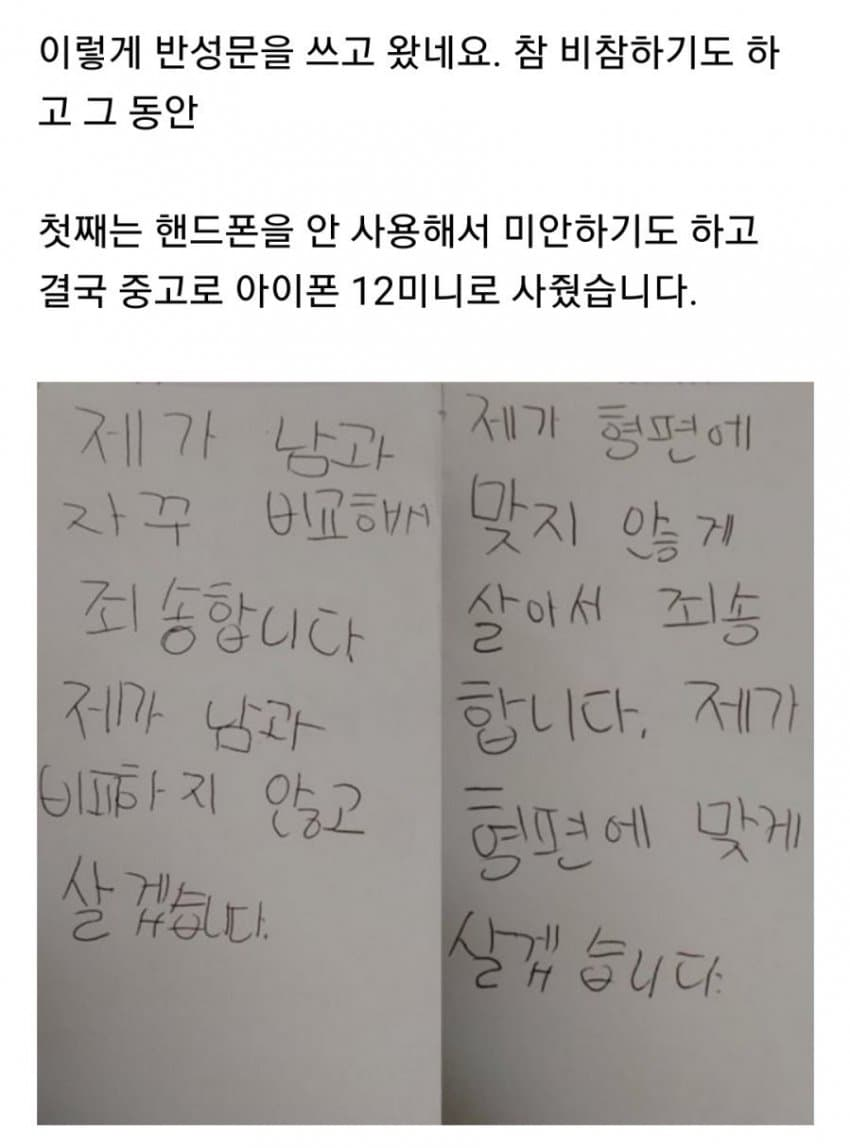 이렇게 반성문을 쓰고 왔네요. 참 비참하기도 하
고 그 동안
첫째는 핸드폰을 안 사용해서 미안하기도 하고
결국 중고로 아이폰 12미니로 사줬습니다.
제가 남과
자꾸 비교해서
죄송합니다
제가 남과
비교하지 않고
살겠습니다.
제가 형편에
맞지 않게
살아서 죄송
합니다. 제가
형편에 맞게
살겠습니다.